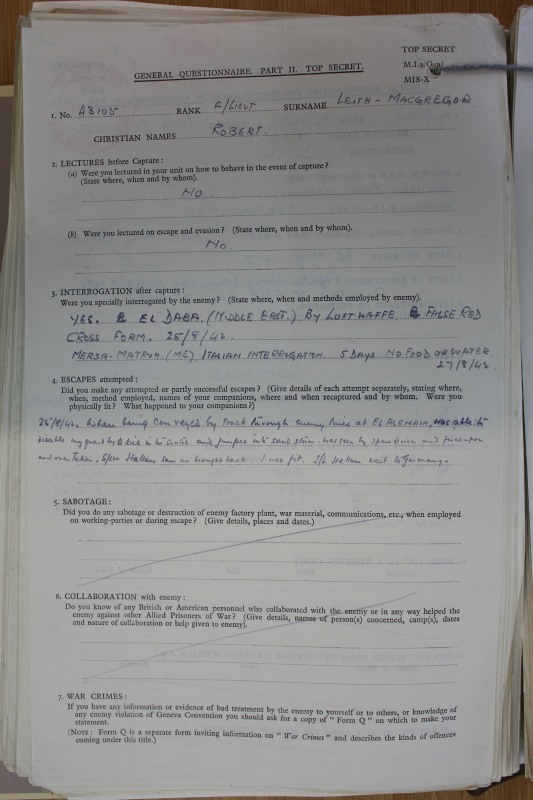 TOP SECRET
M.I.9/Gen/
MIS-X
GENERAL QUESTIONNAIRE. PART II. TOP SECRET.
1. No. 43105 RANK F/LIEUT SURNAME LEITH - MACGREGOR
CHRISTIAN NAMES ROBERT.
2. LECTURES before Capture :
(a) Were you lectured in your unit on how to behave in the event of capture?
(State where, when and by whom).
No.
(b) Were you lectured on escape and evasion? (State where, when and by whom).
No.
3. INTERROGATION after capture :
Were you specially interrogated by the enemy? (State where, when and methods employed by enemy).
YES. EL DABA. (MIDDLE EAST.) BY LUFTWAFFE FALSE RED
CROSS FORM. 25/8/42.
MERSA-MATRUH. (ME). ITALIAN INTERROGATION. 5 DAYS NO FOOD OR WATER.
27/8/42
4. ESCAPES attempted :
Did you make any attempted or partly successful escapes? (Give details of each attempt separately, stating where,
when, method employed, names of your companions, where and when recaptured and by whom. Were you
physically fit? What happened to your companions?)
26/8/42. When being conveyed by truck through enemy lines at EL ALEMAIN, was able to
disable my guard by a kick in the and jumped into sand storm. was seen by and
and over taken. Hallam saw me brought back. I was fit. S/L Hallam went to Germany.
5. SABOTAGE :
Did you do any sabotage or destruction of enemy factory plant, war material, communications, etc., when employed
on working-parties or during escape? (Give details, places and dates.)
6. COLLABORATION with enemy :
Do you know of any British or American personnel who collaborated with the enemy or in any way helped the
enemy against other Allied Prisoners of War? (Give details, names of person(s) concerned, camp(s), dates
and nature of collaboration or help given to enemy).
7. WAR CRIMES :
If you have any information or evidence of bad treatment by the enemy to yourself or to others, or knowledge of
any enemy violation of Geneva Convention you should ask for a copy of " Form Q " on which to make your
statement.
(NOTE : Form Q is a separate form inviting information on " War Crimes " and describes the kinds of offences
coming under this title.)